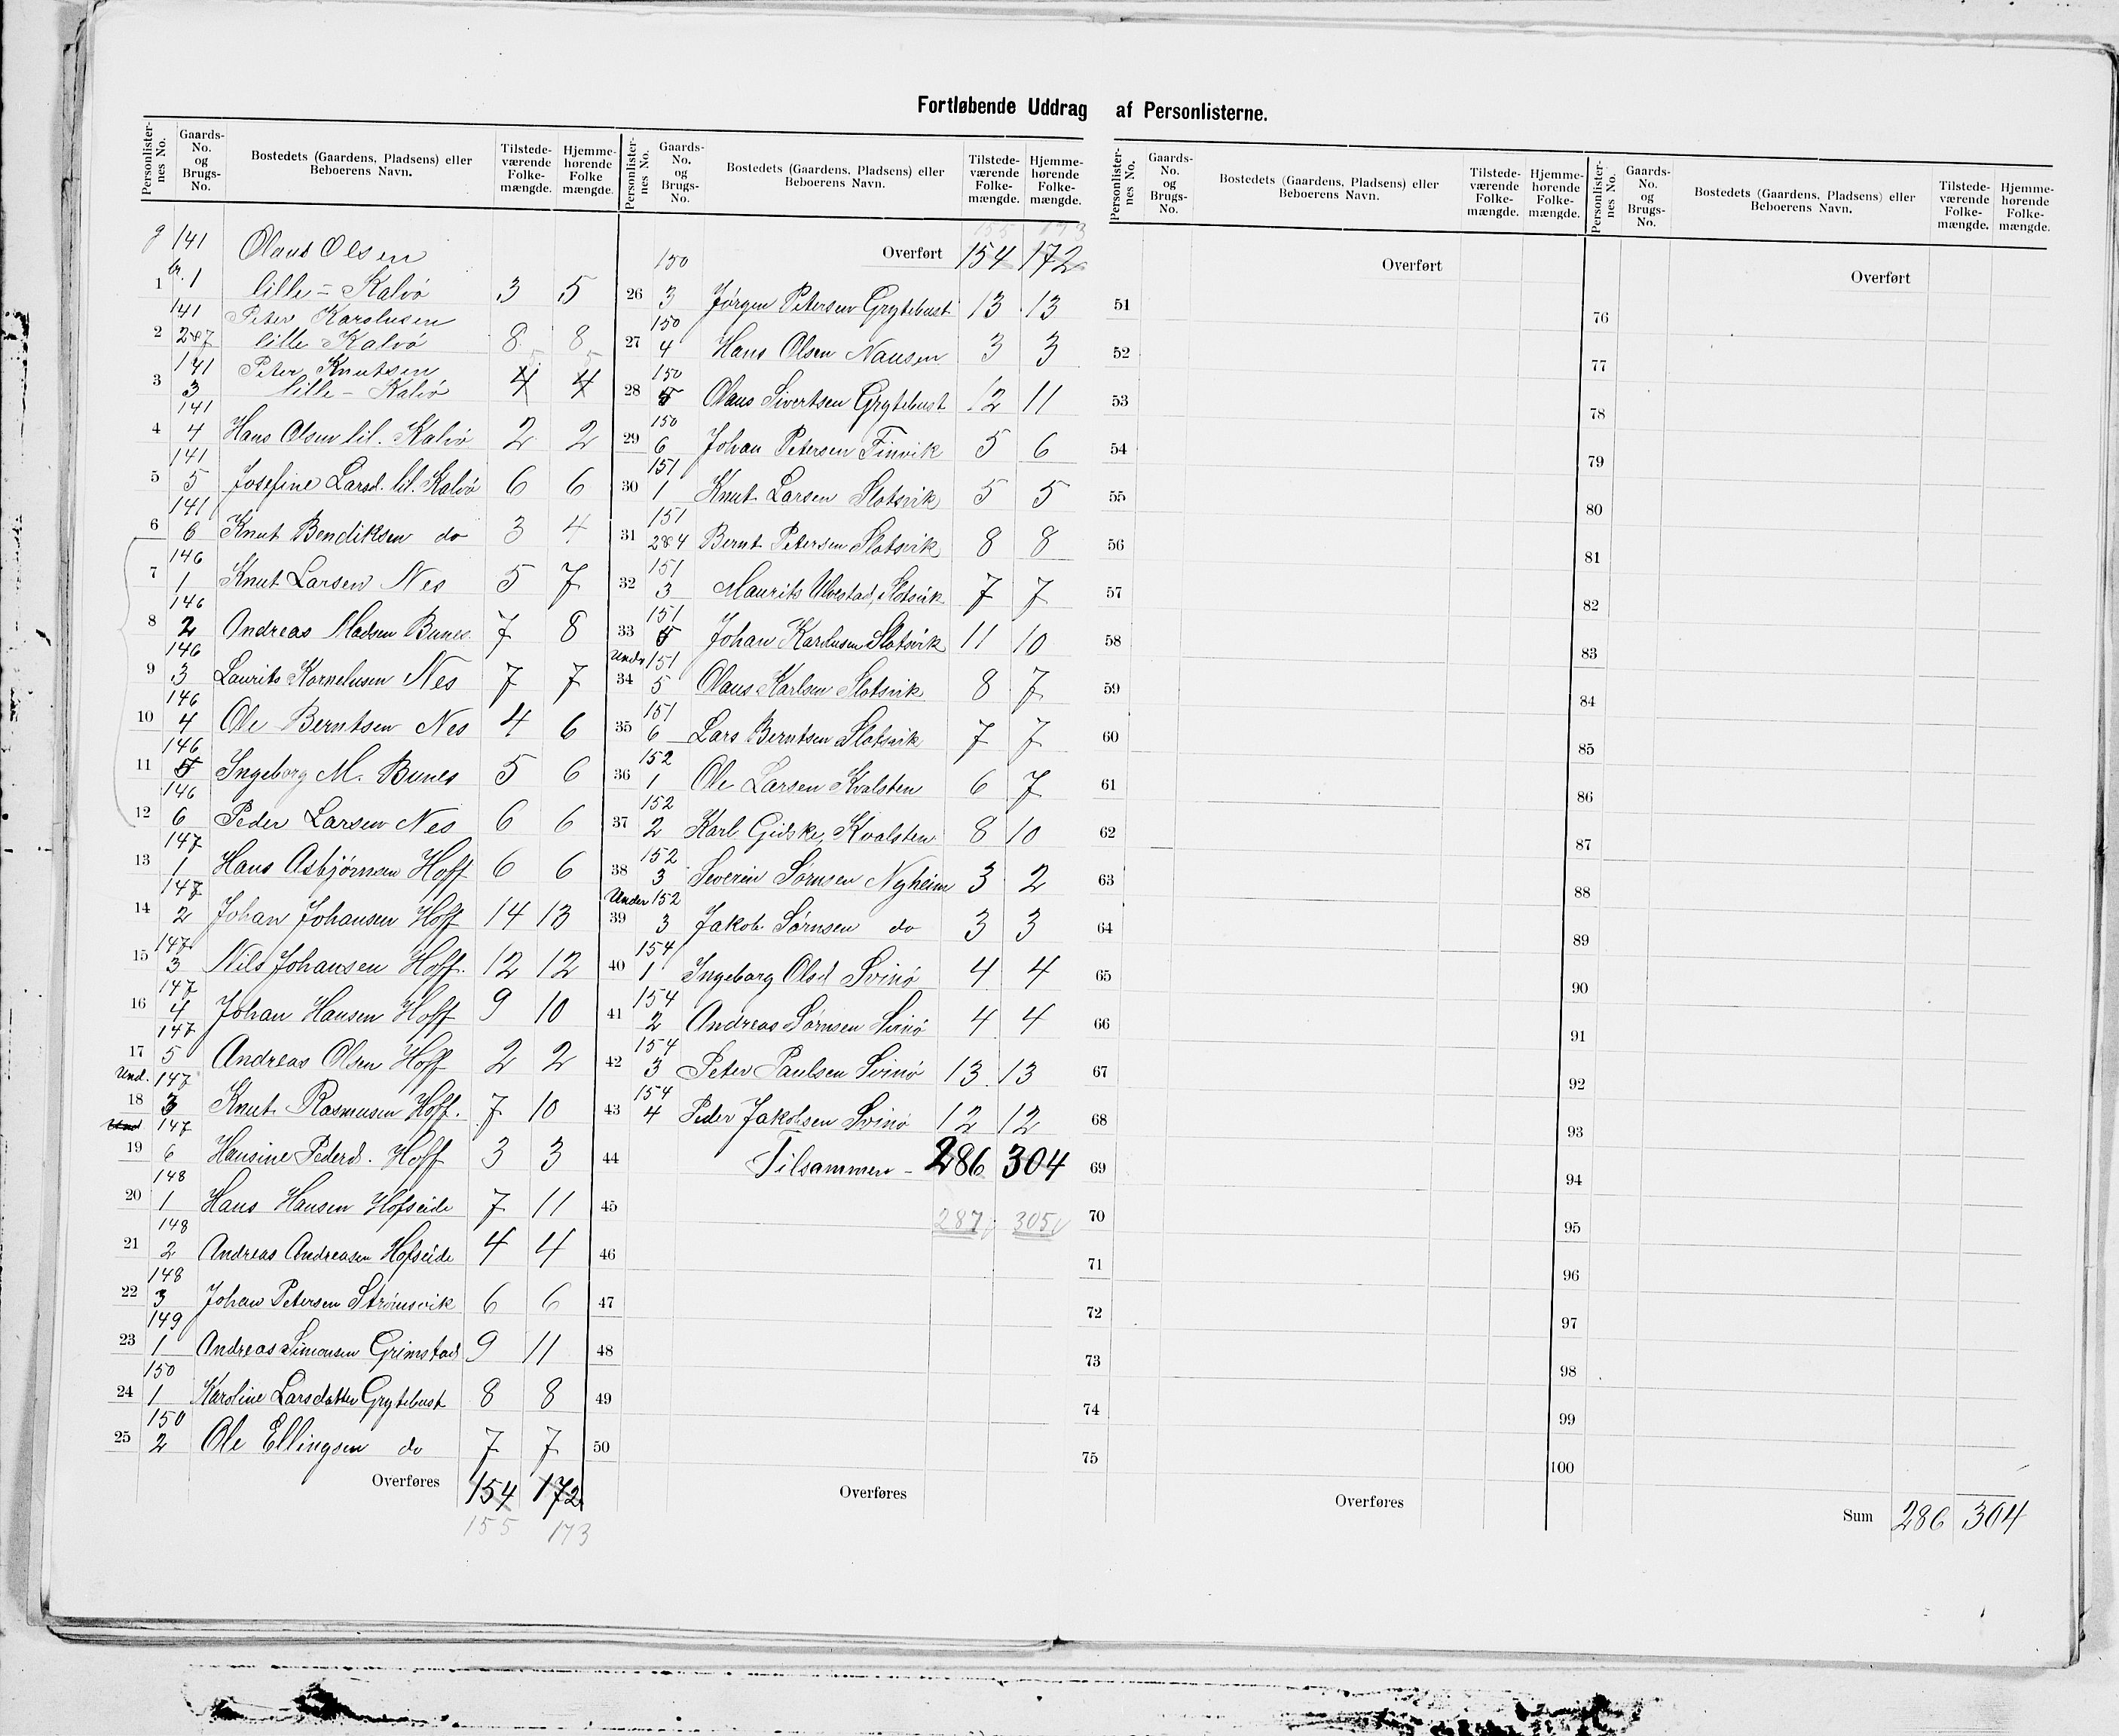 Fortløbende Uddrag af Personlisterne.
Personlisternes No. Gaards-No. og Brugs-No. Bostedets (Gaardens, Pladsens) eller Beboerens Navn. Tilstedeværende Folkemængde. Hjemmehørende Folkemængde.
g 141 Olaus Olsen
1 br. 1 lille = Kalvö 3 5
141 Peter Karolusen
2 2&7 lille Kalvö 8 8
141 Peter Knutsen 5 5
3 3 lille - Kalvö 4 4
4 141 4 Hans Olsen lil. Kalvö 2 2
5 141 5 Josefine Larsd. lil. Kalvö 6 6
6 141 6 Knut Bendiksen do 3 4
7 146 1 Knut Larsen Nes 5 7
8 146 2 Andreas Madsen Bunes 7 8
9 146 3 Laurits Kornelusen Nes 7 7
10 146 4 Ole Berntsen Nes 4 6
11 146 5 Ingeborg M. Bunes 5 6
12 146 6 Peder Larsen Nes 6 6
13 147 1 Hans Asbjørnsen Hoff 6 6
14 147 2 Johan Johansen Hoff 14 13
15 147 3 Nils Johansen Hoff. 12 12
16 147 4 Johan Hansen Hoff 9 10
17 147 5 Andreas Olsen Hoff 2 2
18 Und. 147 3 Knut Rasmusen Hoff. 7 10
19 Und 147 6 Hansine Pedersd. Hoff 3 3
20 148 1 Hans Hansen Hofseide 7 11
21 148 2 Andreas Andreasen Hofseide 4 4
22 148 3 Johan Petersen Strømsvik 6 6
23 149 1 Andreas Simonsen Grimstad 9 11
24 150 1 Karoline Larsdatter Grytebust 8 8
25 150 2 Ole Ellingsen do 7 7
Overføres 154 172
155 173
155 173
Overført 154 172
26 150 3 Jørgen Petersen Grytebust 13 13
27 150 4 Hans Olsen Nausen 3 3
28 150 5 Olaus Sivertsen Grytebust 12 11
29 150 6 Johan Petersen Finvik 5 6
30 151 1 Knut Larsen Slotsvik 5 5
31 151 2&4 Bernt Petersen Slotsvik 8 8
32 151 3 Maurits Ulvestad, Slotsvik 7 7
33 151 5 Johan Karolusen Slotsvik 11 10
34 Under 151 5 Olaus Karlsen Slotsvik 8 7
35 151 6 Lars Berntsen Slotsvik 7 7
36 152 1 Ole Larsen Kvalsten 6 7
37 152 2 Karl Gidske, Kvalsten 8 10
38 152 3 Severin Sørnsen Nyheim 3 2
39 Under 152 3 Jakob Sørnsen do 3 3
40 154 1 Ingeborg Olsd Svinö 4 4
41 154 2 Andreas Sørnsen Svinö 4 4
42 154 3 Peter Paulsen Svinö 13 13
43 154 4 Peder Jakobsen Svinö 12 12
44 Tilsammen - 286 304
45
287 305
46
47
48
49
50
Overføres
Personlisternes No. Gaards-No. og Brugs-No. Bostedets (Gaardens, Pladsens) eller Beboerens Navn. Tilstedeværende Folkemængde. Hjemmehørende Folkemængde.
Overført
51
52
53
54
55
56
57
58
59
60
61
62
63
64
65
66
67
68
69
70
71
72
73
74
75
Overføres
Overført
76
77
78
79
80
81
82
83
84
85
86
87
88
89
90
91
92
93
94
95
96
97
98
99
100
Sum 286 304